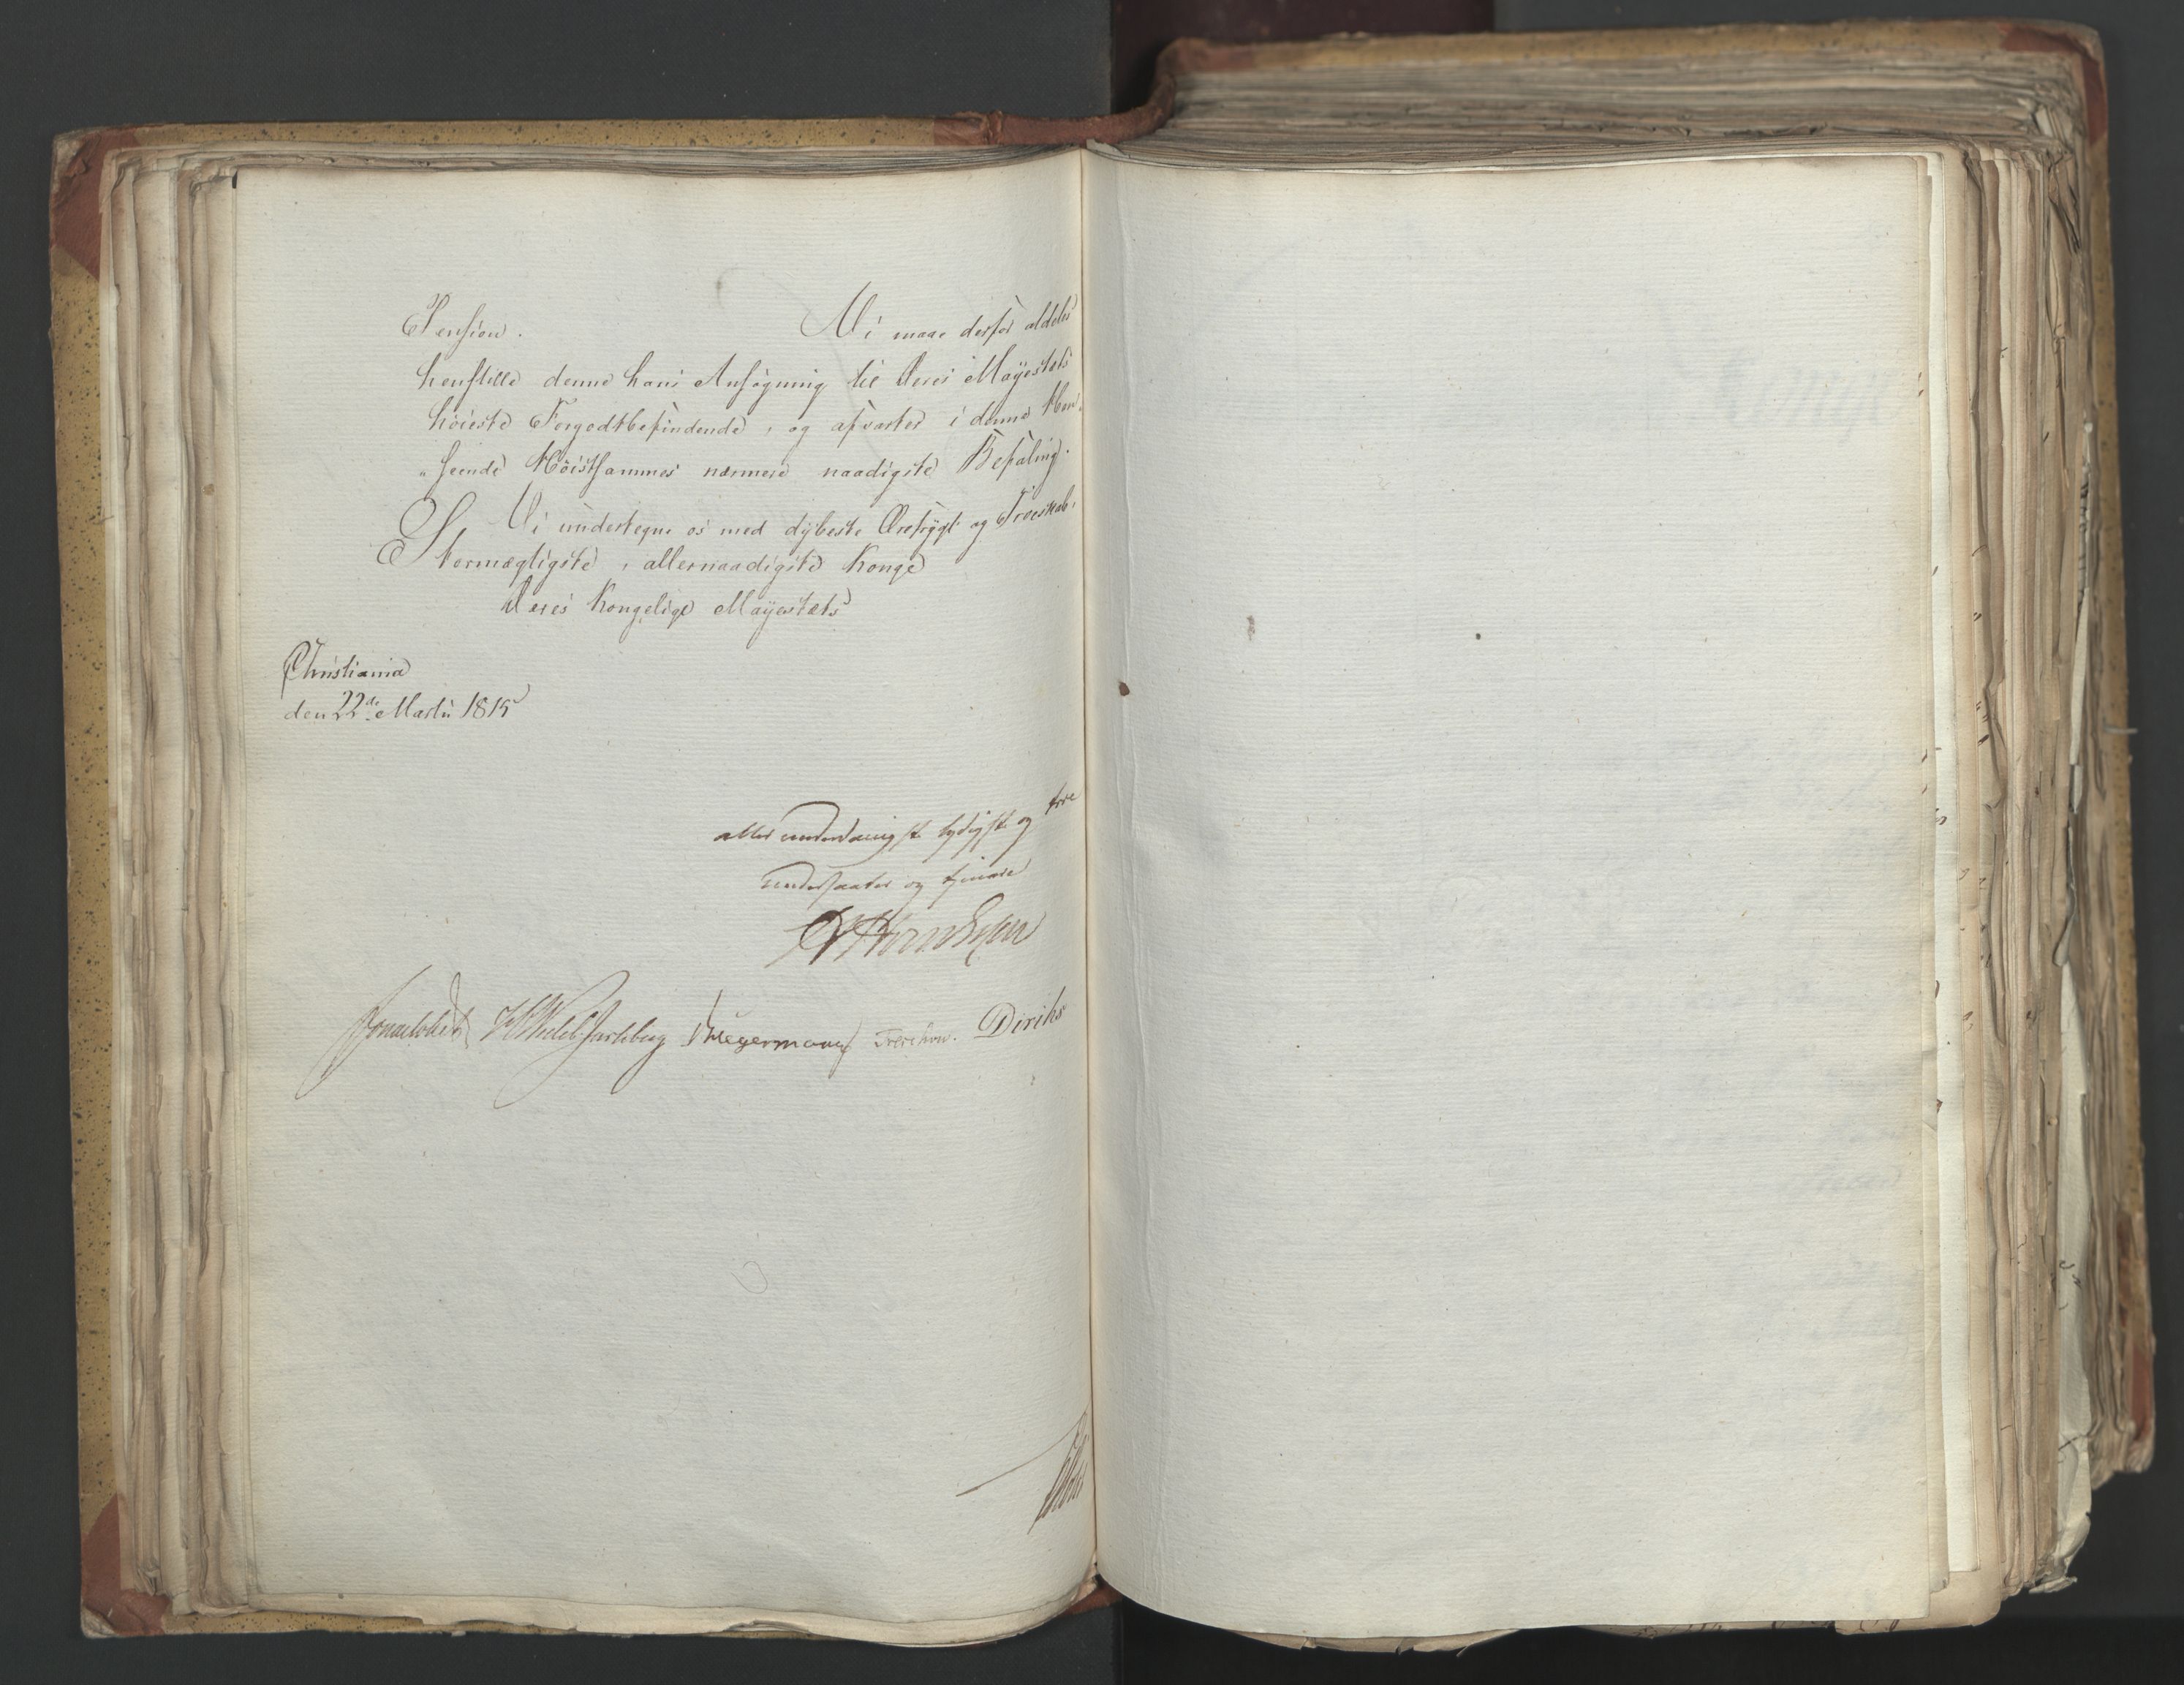 Pension. Vi maae derfor aldeles
henstille denne hans Ansøgning til Deres Mayestæts
høieste Forgodtbefindende, og afvarter i denne Hen,
"seende Høistsammes nærmere naadigste Befaling.
Vi undertegne os med dybeste Ærefrygt og Troeskab,
Stormægtigste, allernaadigste Konge
Deres Kongelige Mayestæts
Christiania
den 22de Martii 1815
allerunderdanigste lydigste og troe
undersaatter og tjenere
Sommerhielm HWedel Jarlsberg Krieger Treschow. Diriks